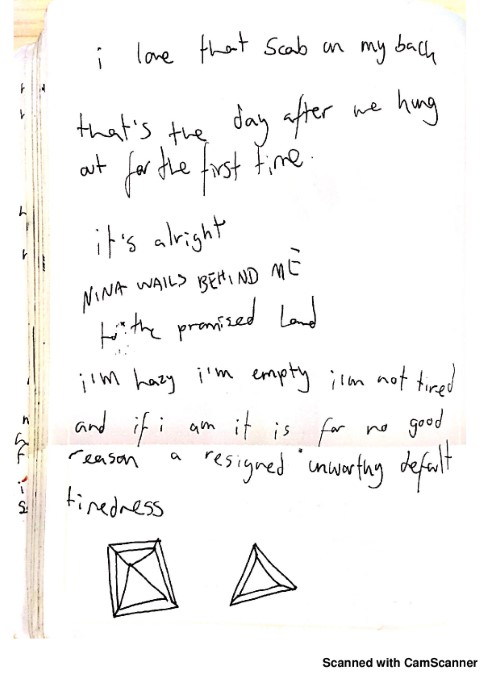 i love that scab on my back
that's the day after we hung
out for the first time.
it's alright
NINA WAILS BEHIND ME
to the promised Land
i'm hazy i'm empty i'm not tired
and if i am it is for no good
reason a resigned unworthy defalt
tiredness
Scanned with CamScanner